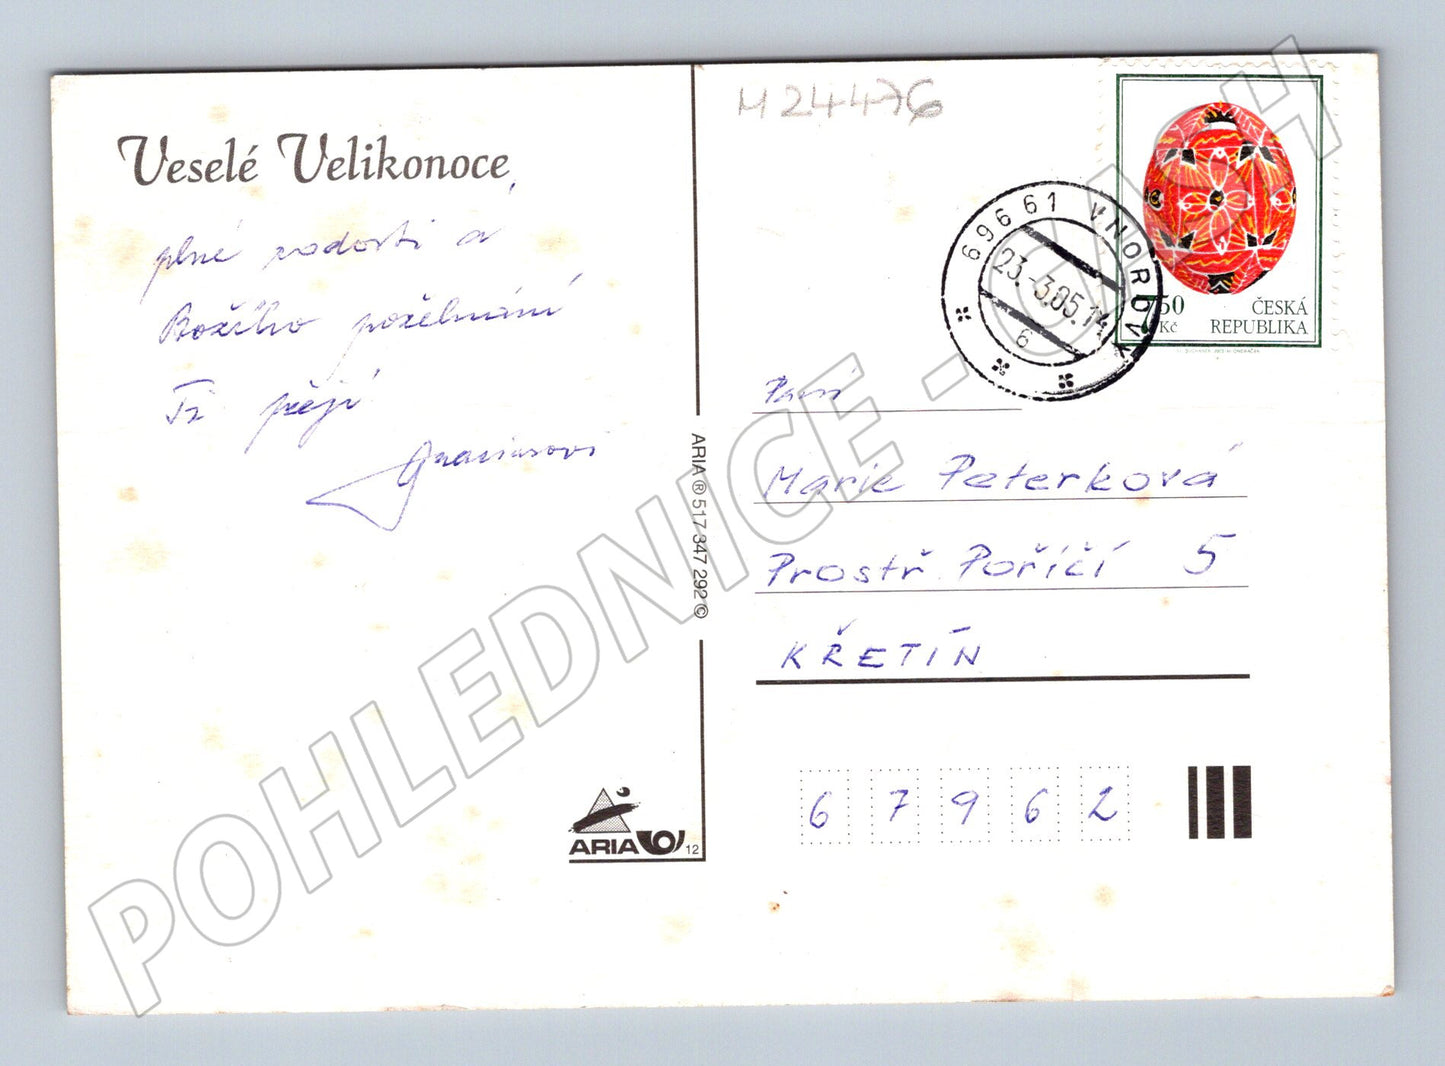 Veselé Velikonoce,
plné radosti a
Božího požehnání
Ti přejí
M 24476
696 61 VNOROVY
23.-3.05.14
6
7,50 Kč
ČESKÁ
REPUBLIKA
Paní
Marie Peterková
Prostř. Poříčí 5
KŘETÍN
67962
ARIA ® 517 347 292 ©
ARIA
12
POHLEDNICE - CASH